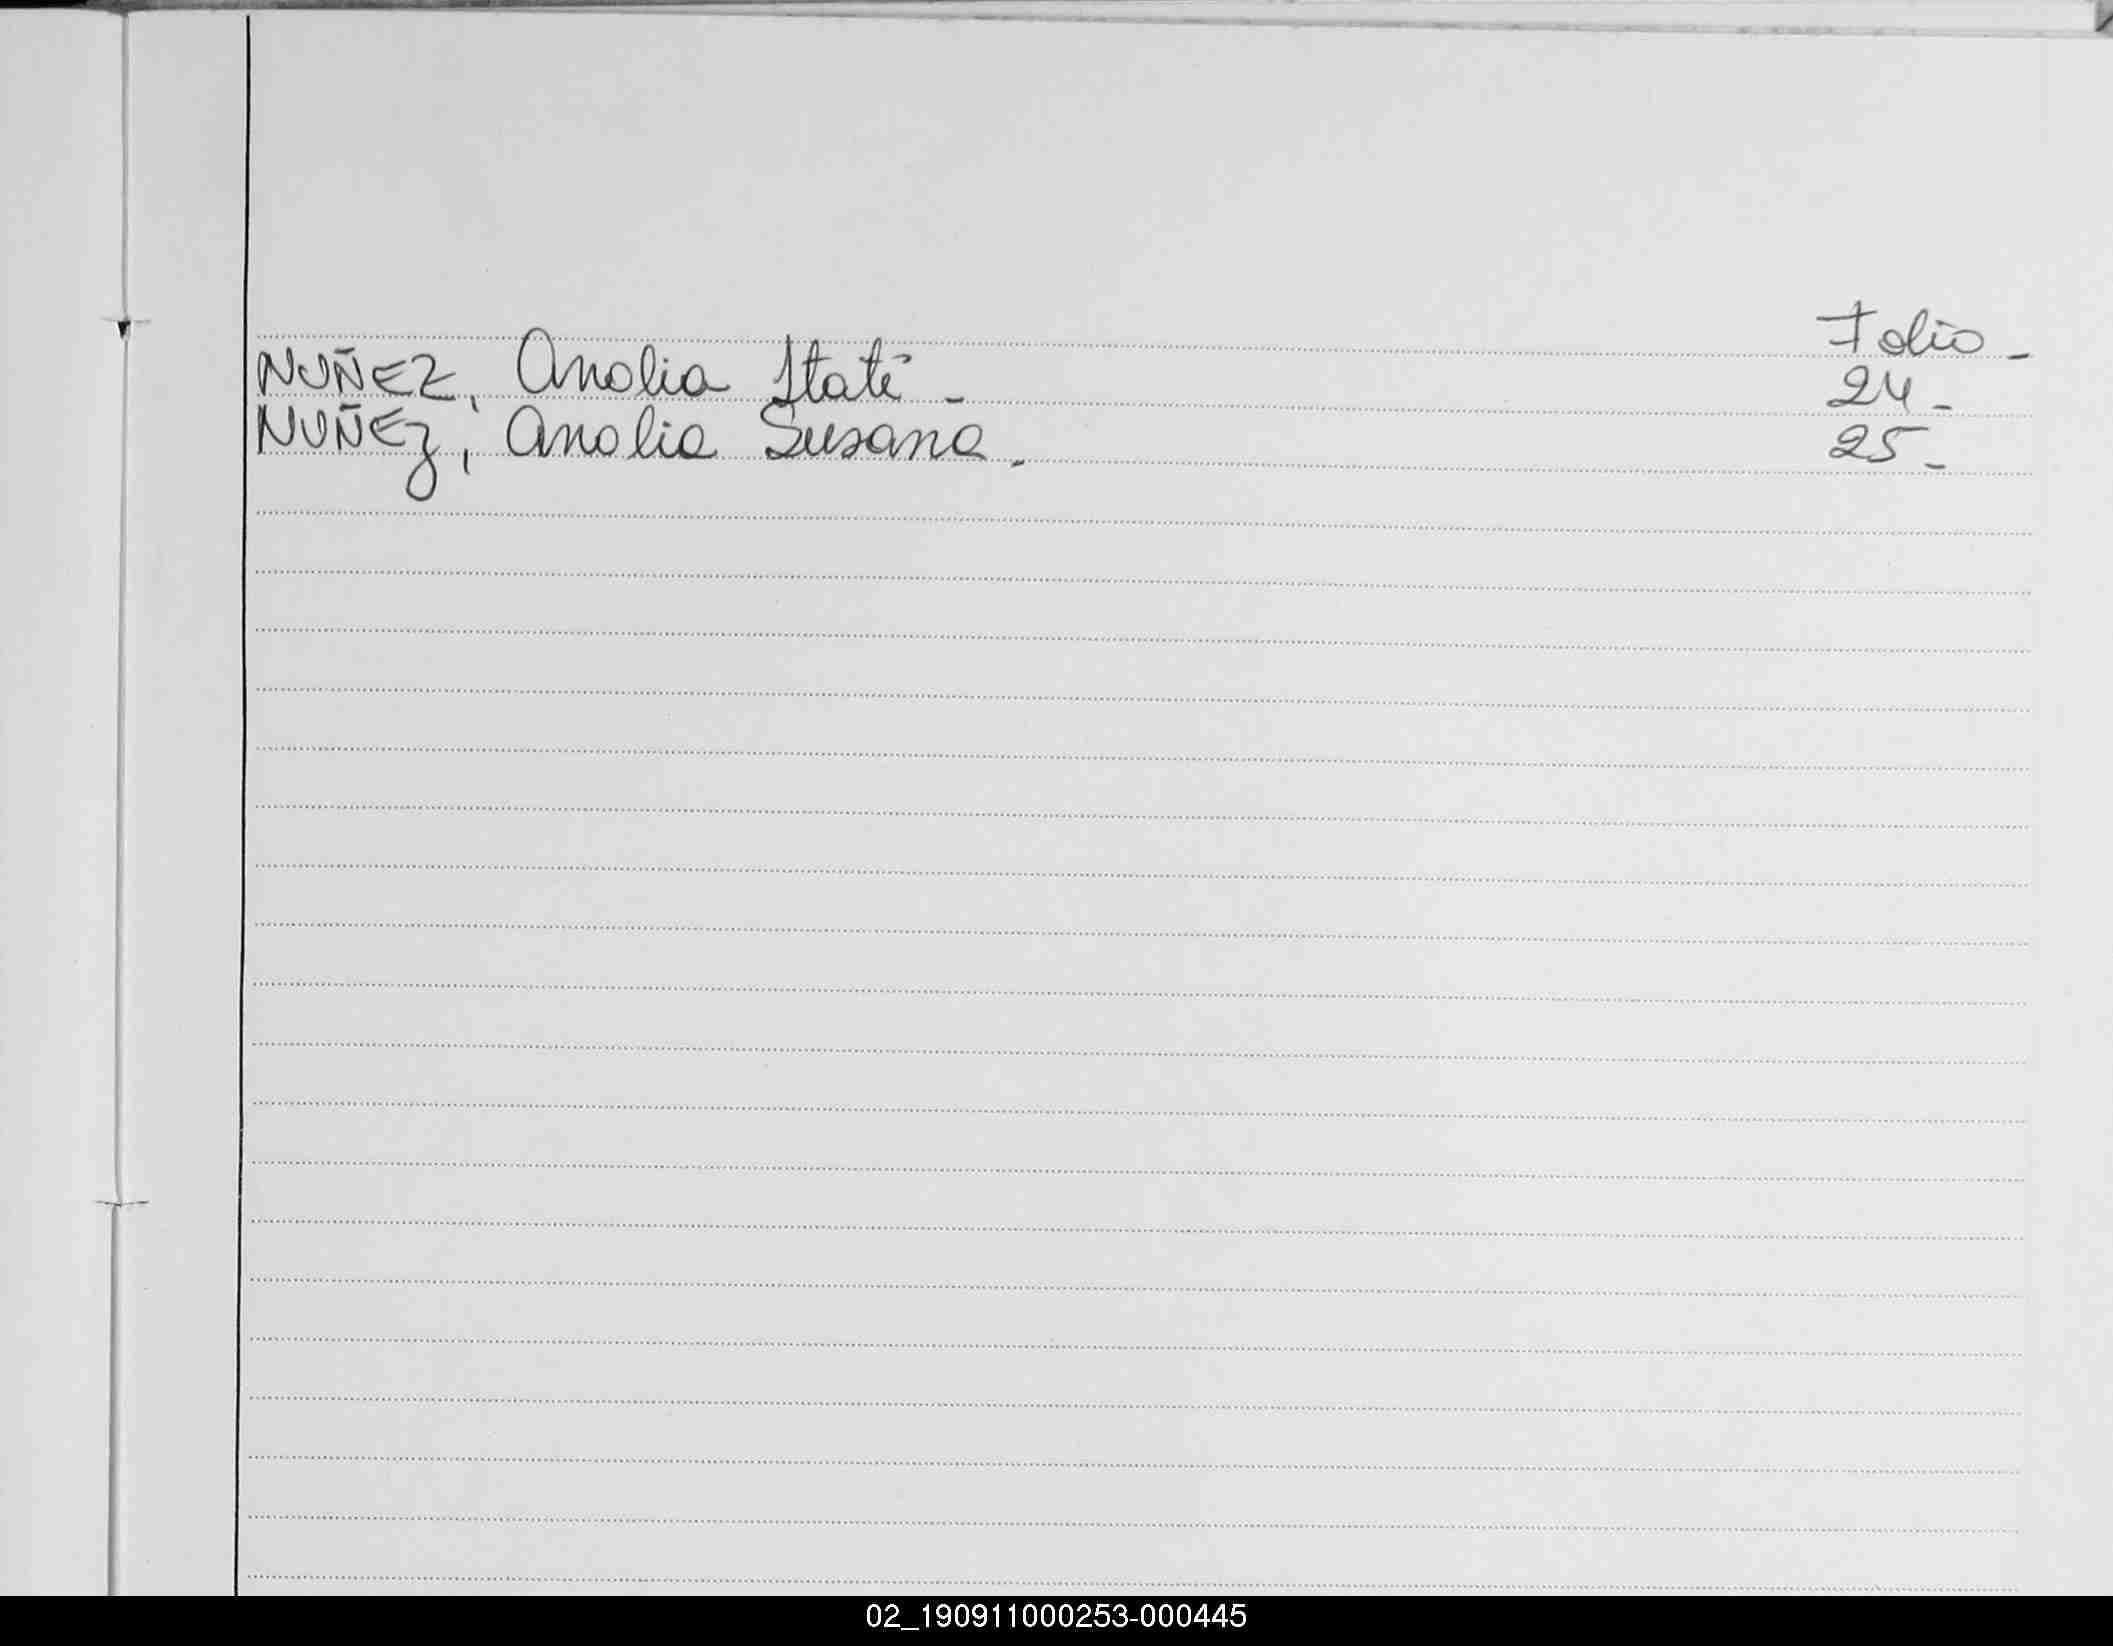 Folio -
NUÑEZ, Analia Itatí - 24 -
NUÑEZ, Analia Susana - 25 -
02_190911000253-000445